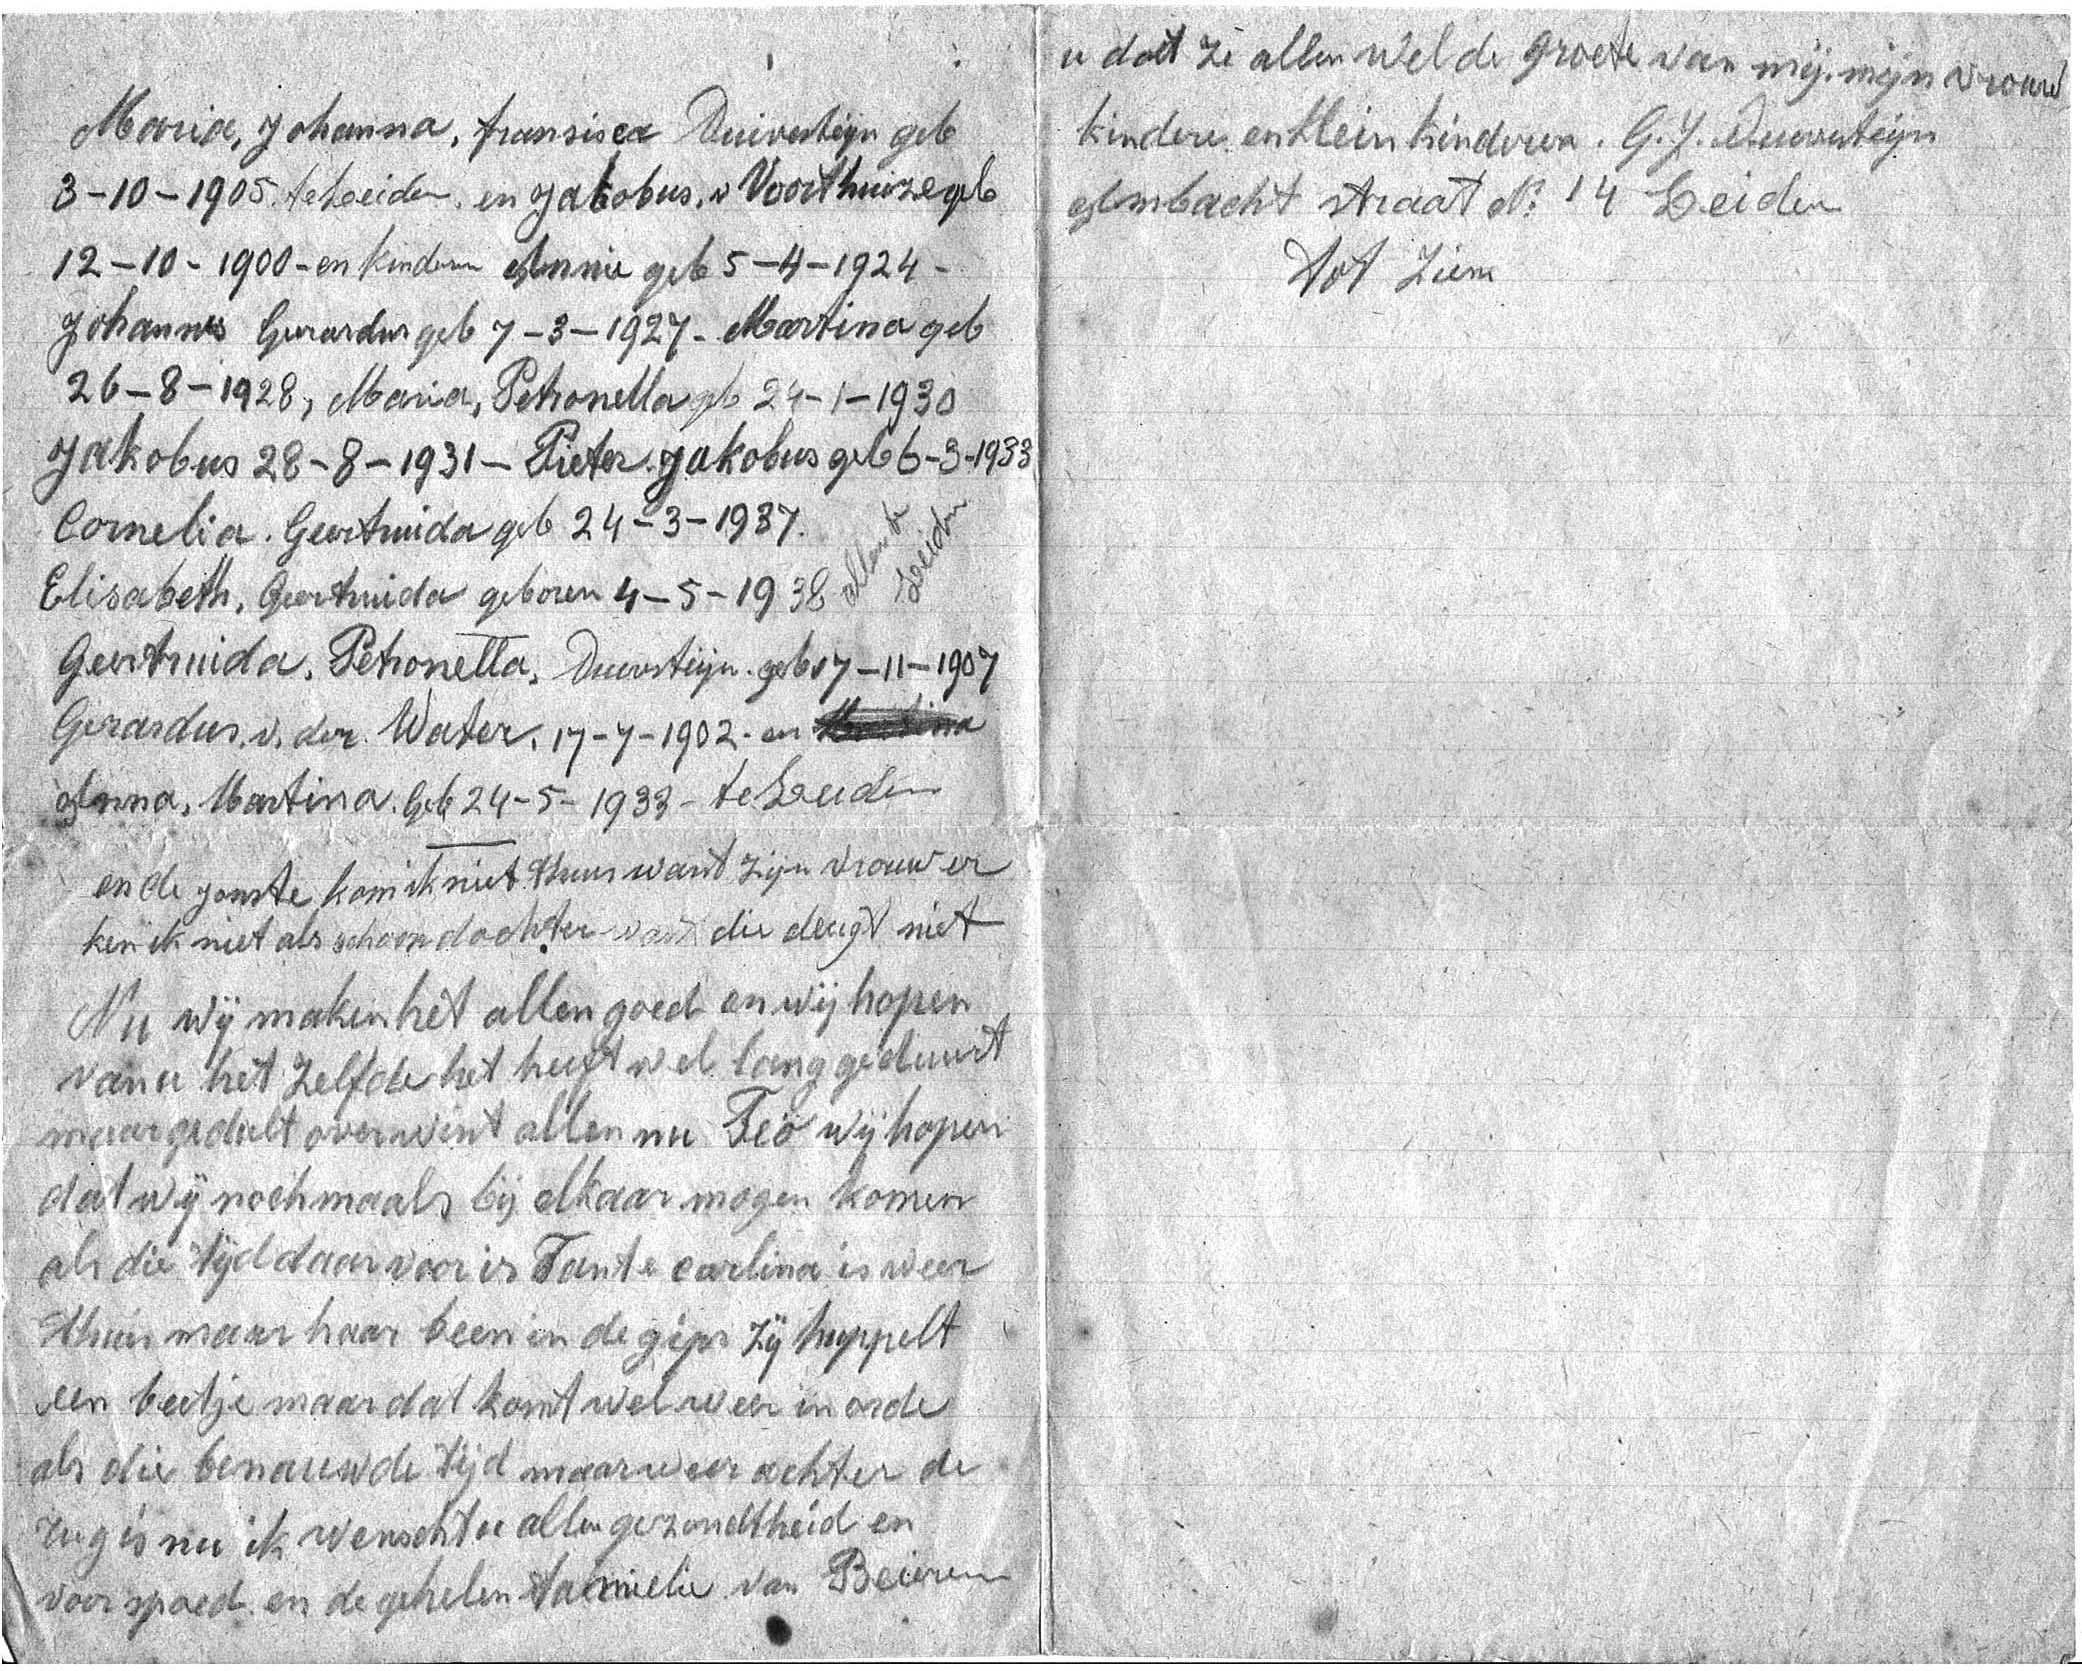 Maria, Johanna, fransisca Duivesteijn geb
3-10-1905. te Leiden. en Jakobus. v Voorthuize geb
12-10-1900-en kinderen Annie geb 5-4-1924-
Johannes Gerardus geb 7-3-1927- Martina geb
26-8-1928, Maria, Petronella geb 24-1-1930
Jakobus 28-8-1931- Pieter. Jakobus geb 6-3-1933
Cornelia. Geertruida geb 24-3-1937.
allen te
Leiden
Elisabeth, Geertruida geboren 4-5-1938
Geertruida, Petronella, Duivesteijn. geb 17-11-1907
Gerardus. v. der. Water, 17-7-1902- en
Anna, Martina. Geb 24-5-1933- te Leiden
en de jonste kom ik niet thuis want zijn vrouw er
ken ik niet als schoondochter want die deugt niet
Nu wij maken het allen goed en wij hopen
van u het zelfde het heeft wel lang geduurt
maar gedult overwint allen nu Teo wij hopen
dat wij nochmaals bij elkaar mogen komen
als die tijd daar voor is Tante Carlina is weer
thuis maar haar been in de gips zij huppelt
een beetje maar dat komt wel weer in orde
als die benauwde tijd maar weer achter de
rug is nu ik wenscht u allen gezondtheid en
voorspoed. en de gehelen familie van Beieren
u doet ze allen wel de groete van mij. mijn vrouw
kindere en kleinkinderen. G. J. Duivesteijn
Ambacht straat No 14 Leiden
Tot Ziens